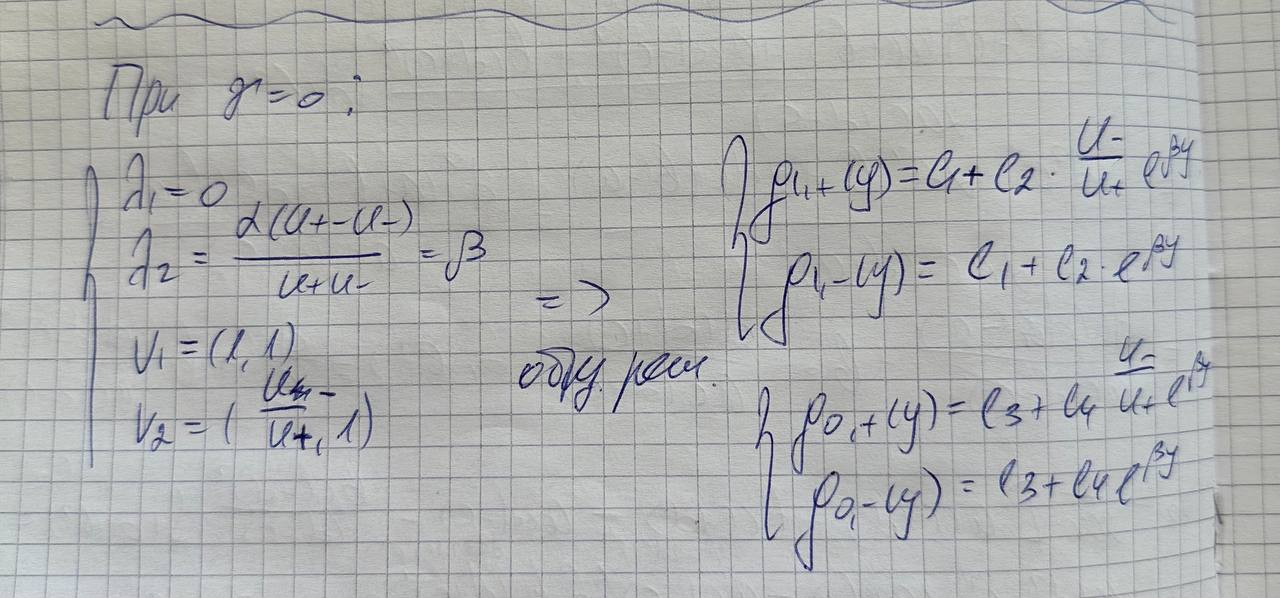 При γ=0:
λ₁=0
λ₂ = α(u₊-u₋)/u₊u₋ = β
v₁=(1,1)
v₂=(u₋/u₊, 1)
=>
общ. реш.
ρ₁,₊(y)=C₁+C₂·u₋/u₊ e^βy
ρ₁,₋(y)= C₁+C₂·e^βy
ρ₀,₊(y)=C₃+C₄ u₋/u₊ e^βy
ρ₀,₋(y)=C₃+C₄e^βy